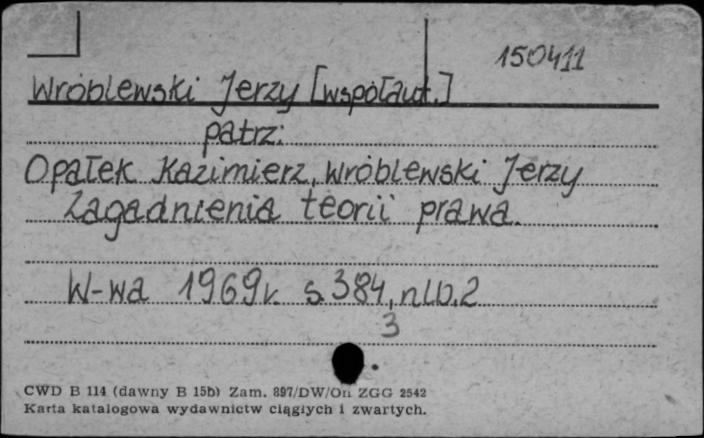 150411
Wróblewski Jerzy [współaut.]
patrz:
Opałek Kazimierz, Wróblewski Jerzy
Zagadnienia teorii prawa.
W-wa 1969 r. s. 384, nlb. 2
3
CWD B 114 (dawny B 15b) Zam. 897/DW/On ZGG 2542
Karta katalogowa wydawnictw ciągłych i zwartych.